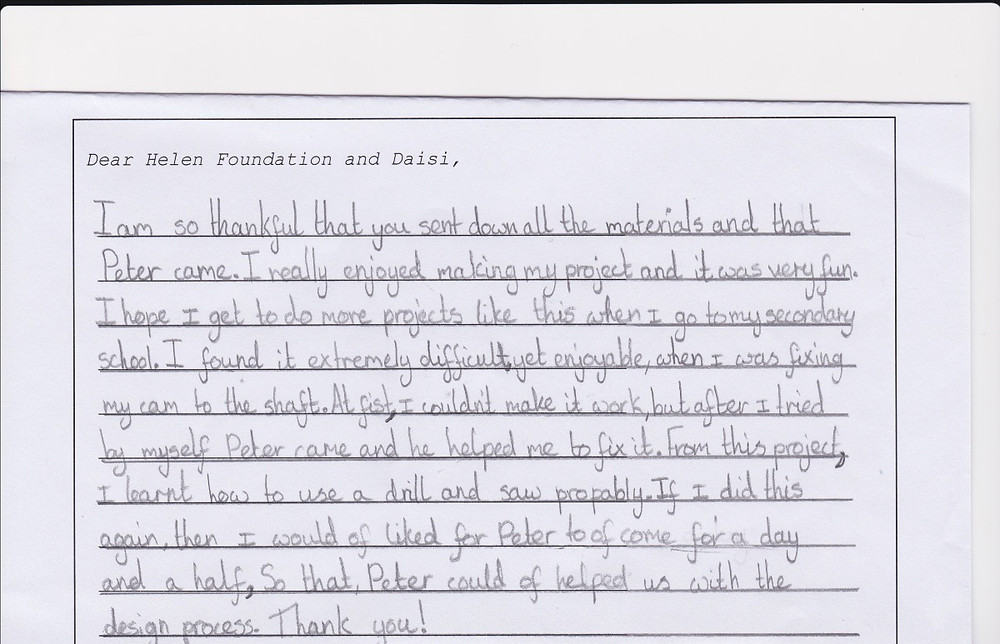 Dear Helen Foundation and Daisi,
I am so thankful that you sent down all the materials and that
Peter came. I really enjoyed making my project and it was very fun.
I hope I get to do more projects like this when I go to my secondary
school. I found it extremely difficult, yet enjoyable, when I was fixing
my cam to the shaft. At fist, I couldn't make it work, but after I tried
by myself Peter came and he helped me to fix it. From this project,
I learnt how to use a drill and saw propably. If I did this
again, then I would of liked for Peter to of come for a day
and a half, So that, Peter could of helped us with the
design process. Thank you!